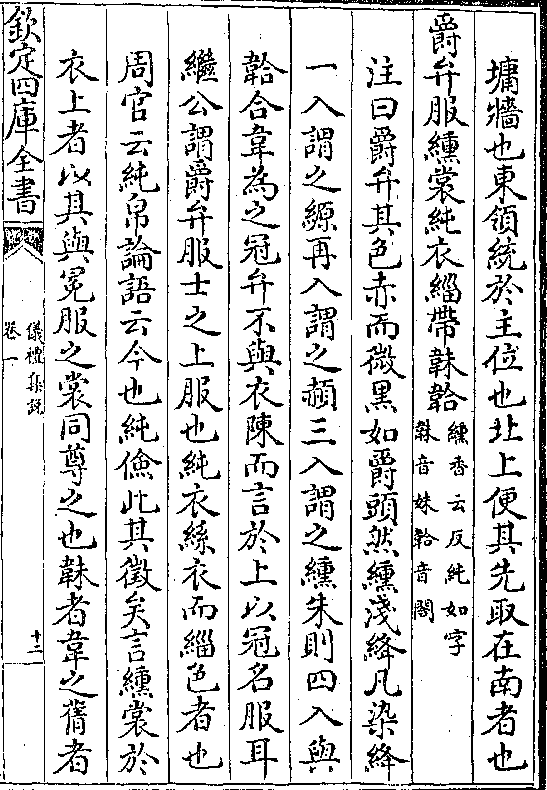 墉牆也東領統於主位也北上便其先取在南者也
爵弁服纁裳純衣緇帶韎韐
纁香云反純如字
韎音妹韐音閤
注曰爵弁其色赤而微黑如爵頭然纁淺絳凡染絳
一入謂之縓再入謂之赬三入謂之纁朱則四入與
韐合韋為之冠弁不與衣陳而言於上以冠名服耳
繼公謂爵弁服士之上服也純衣絲衣而緇色者也
周官云純帛論語云今也純儉此其徵矣言纁裳於
衣上者以其與冕服之裳同尊之也韎者韋之蒨者
欽定四庫全書
儀禮集說
卷一
十二